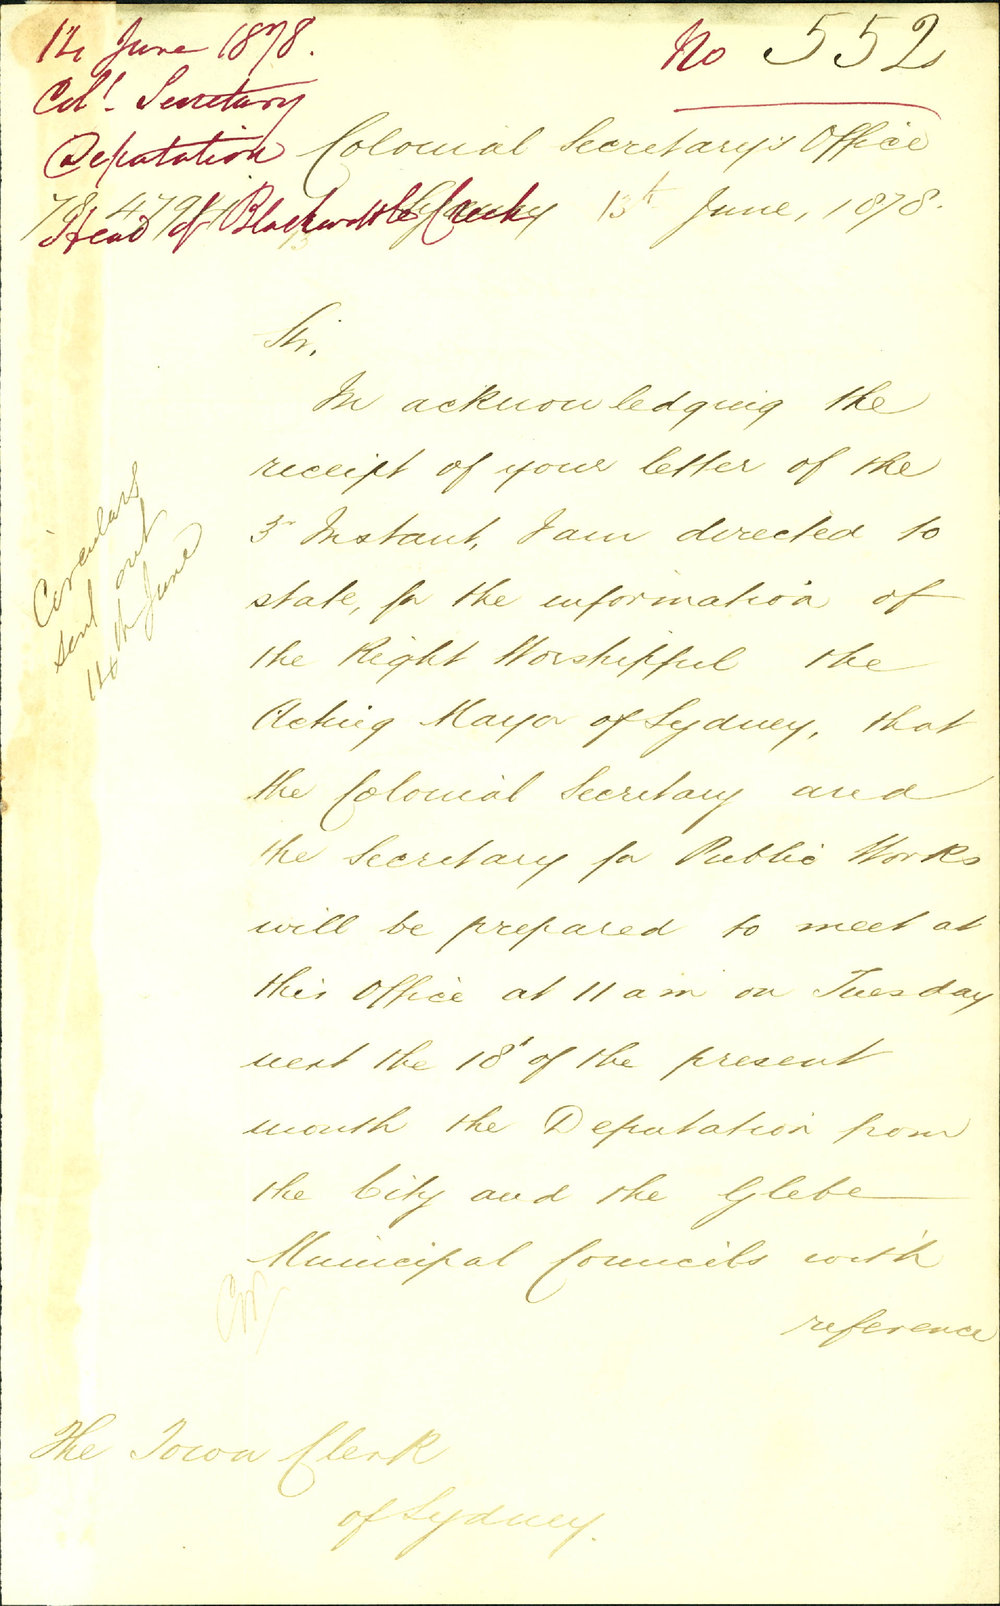 14 June 1878.
No 552
Col! Secretary
Deputation
Head of Blackwattle Creek
Colonial Secretary's Office
Sydney 13th June, 1878.
Sir,
In acknowledging the
receipt of your letter of the
3r Instant, I am directed to
state, for the information of
the Right Worshipful the
Acting Mayor of Sydney, that
the Colonial Secretary and
the Secretary for Public Works
will be prepared to meet at
this Office at 11 am on Tuesday
next the 18t of the present
month the Deputation from
the City and the Glebe
Municipal Councils with
reference
Circulars
sent out
14th June
The Town Clerk
of Sydney.